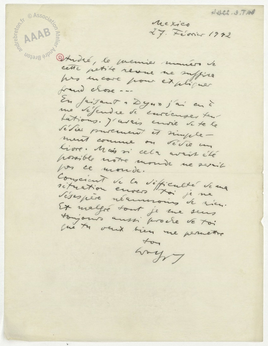 AAAB
Mexico
27 Février 1942
André, le premier numéro de
cette petite revue ne suffira
pas encore pour expliquer
grand chose —
En faisant "Dyn" j'ai eu à
me défendre de curieuses
J'avais envie de te le
dédier purement et simple-
ment comme on dédie un
livre. Mais si cela avait été
possible notre monde ne serait
pas ce monde.
Conscient de la difficulté de ma
situation envers toi je ne
désespère néanmoins de rien.
Et malgré tout je me sens
toujours aussi proche de toi
que tu veux bien me permettre
ton